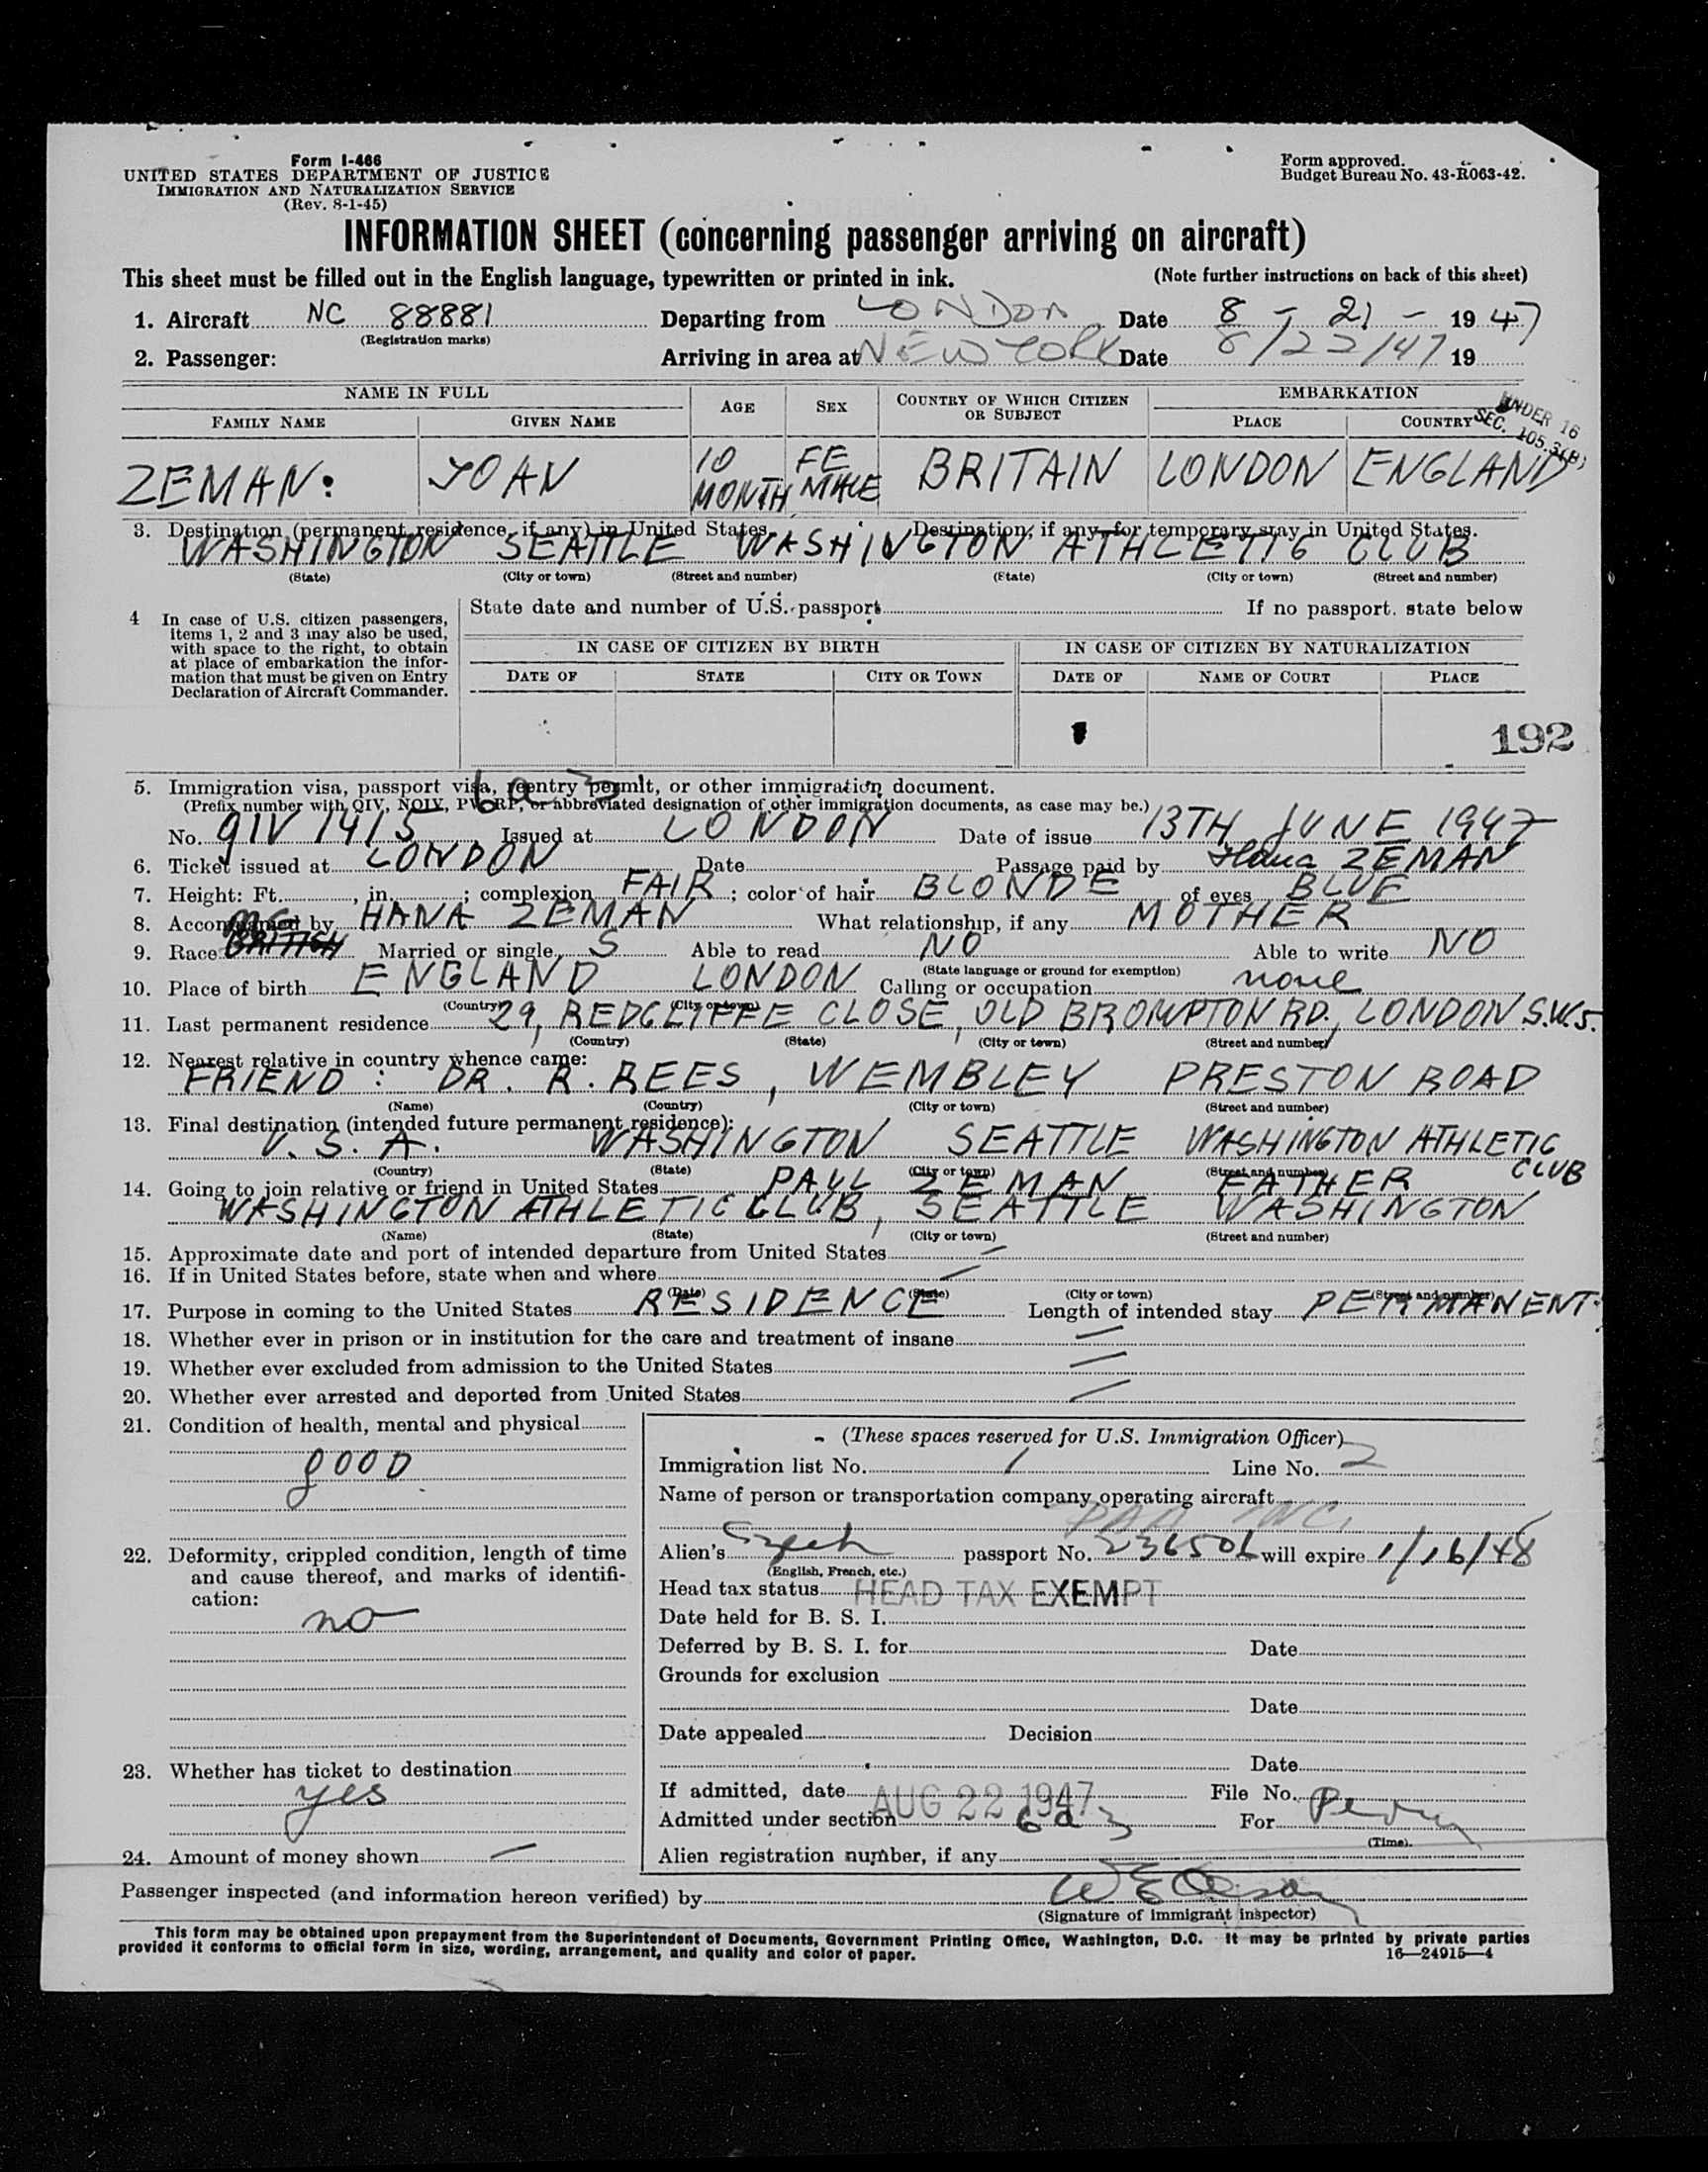 Form I-466
UNITED STATES DEPARTMENT OF JUSTICE
IMMIGRATION AND NATURALIZATION SERVICE
(Rev. 8-1-45)
Form approved.
Budget Bureau No. 43-R063-42.
INFORMATION SHEET (concerning passenger arriving on aircraft)
This sheet must be filled out in the English language, typewritten or printed in ink. (Note further instructions on back of this sheet)
1. Aircraft NC 88881 Departing from LONDON Date 8 - 21 - 19 47
(Registration marks)
2. Passenger: Arriving in area at NEW YORK Date 8/22/47 19
NAME IN FULL AGE SEX COUNTRY OF WHICH CITIZEN OR SUBJECT EMBARKATION
FAMILY NAME GIVEN NAME PLACE COUNTRY
UNDER 16
SEC. 105.3(B)
ZEMAN: JOAN 10 MONTH FEMALE BRITAIN LONDON ENGLAND
3. Destination (permanent residence, if any) in United States Destination, if any, for temporary stay in United States.
WASHINGTON SEATTLE WASHINGTON ATHLETIC CLUB
(State) (City or town) (Street and number) (State) (City or town) (Street and number)
4 In case of U.S. citizen passengers, items 1, 2 and 3 may also be used, with space to the right, to obtain at place of embarkation the information that must be given on Entry Declaration of Aircraft Commander.
State date and number of U.S. passport If no passport, state below
IN CASE OF CITIZEN BY BIRTH IN CASE OF CITIZEN BY NATURALIZATION
DATE OF STATE CITY OR TOWN DATE OF NAME OF COURT PLACE
192
5. Immigration visa, passport visa, reentry permit, or other immigration document.
6 a 3
(Prefix number with QIV, NQIV, PV, RP, or abbreviated designation of other immigration documents, as case may be.)
No. QIV 1415 Issued at LONDON Date of issue 13TH JUNE 1947
6. Ticket issued at LONDON Date Passage paid by Hana ZEMAN
7. Height: Ft. , in. ; complexion FAIR ; color of hair BLONDE of eyes BLUE
8. Accompanied by HANA ZEMAN What relationship, if any MOTHER
9. Race BRITISH Married or single S Able to read NO Able to write NO
(State language or ground for exemption)
10. Place of birth ENGLAND LONDON Calling or occupation none
(Country) (City or town)
11. Last permanent residence 29, REDCLIFFE CLOSE, OLD BROMPTON RD., LONDON S.W.5.
(Country) (State) (City or town) (Street and number)
12. Nearest relative in country whence came:
FRIEND : DR. R. REES, WEMBLEY PRESTON ROAD
(Name) (Country) (City or town) (Street and number)
13. Final destination (intended future permanent residence):
U.S.A. WASHINGTON SEATTLE WASHINGTON ATHLETIC CLUB
(Country) (State) (City or town) (Street and number)
14. Going to join relative or friend in United States PAUL ZEMAN FATHER
WASHINGTON ATHLETIC CLUB, SEATTLE WASHINGTON
(Name) (State) (City or town) (Street and number)
15. Approximate date and port of intended departure from United States —
16. If in United States before, state when and where —
(Date) (State) (City or town) (Street and number)
17. Purpose in coming to the United States RESIDENCE Length of intended stay PERMANENT.
18. Whether ever in prison or in institution for the care and treatment of insane —
19. Whether ever excluded from admission to the United States —
20. Whether ever arrested and deported from United States —
21. Condition of health, mental and physical
good
22. Deformity, crippled condition, length of time and cause thereof, and marks of identification:
no
23. Whether has ticket to destination
yes
24. Amount of money shown —
(These spaces reserved for U.S. Immigration Officer)
Immigration list No. 1 Line No. 2
Name of person or transportation company operating aircraft
PAA INC.
Alien's Czech passport No. 236506 will expire 1/16/48
(English, French, etc.)
Head tax status HEAD TAX EXEMPT
Date held for B. S. I.
Deferred by B. S. I. for Date
Grounds for exclusion
Date
Date appealed Decision
Date
If admitted, date AUG 22 1947 File No.
Admitted under section 6 a 3 For Perm
(Time).
Alien registration number, if any
Passenger inspected (and information hereon verified) by
(Signature of immigrant inspector)
This form may be obtained upon prepayment from the Superintendent of Documents, Government Printing Office, Washington, D.C. It may be printed by private parties
provided it conforms to official form in size, wording, arrangement, and quality and color of paper. 16—24915—4